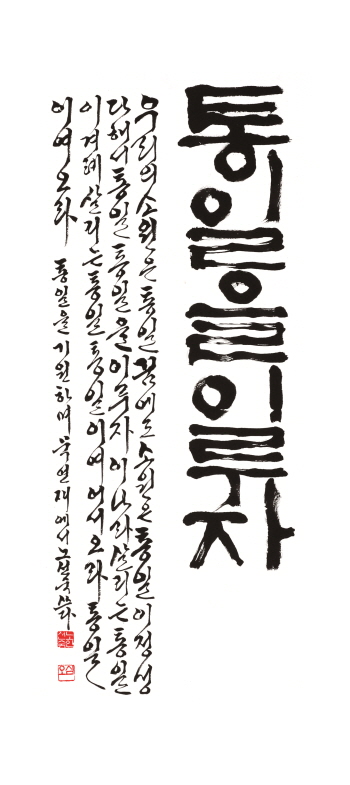 통일을 이루자
우리의 소원은 통일 꿈에도 소원은 통일 이 정성
다해서 통일 통일을 이루자 이 나라 살리는 통일
이 겨레 살리는 통일 통일이여 어서 오라 통일
이여 오라 통일을 기원하며 묵연재에서